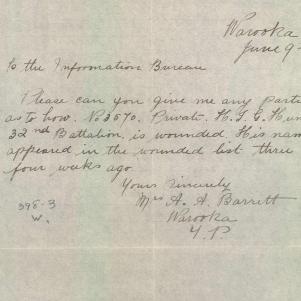 Warooka
June 9-
To the Information Bureau
Please can you give me any parti
as to how. No 3570. Private. H. T. C. Hun
32nd Battalion, is wounded. His nam
appeared in the wounded list three
four weeks ago.
Yours Sincerely
Mrs A. A. Barrett
Warooka
Y. P.
398-3
W.